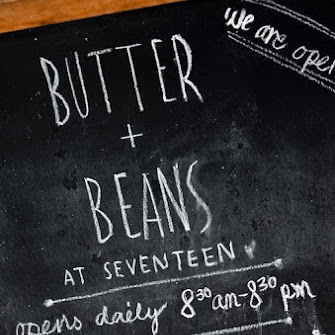 We are open
BUTTER
+
BEANS
AT SEVENTEEN
opens daily 8³⁰am-8³⁰pm